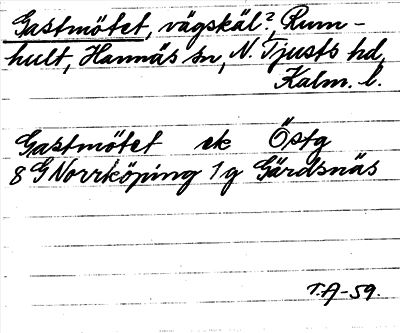 Gastmötet, vägskäl?, Rum-
hult, Hannäs sn, N. Tjusts hd,
Kalm. l.
Gastmötet ek Östg
8 G Norrköping 1 g Gärdsnäs
T.A-59.